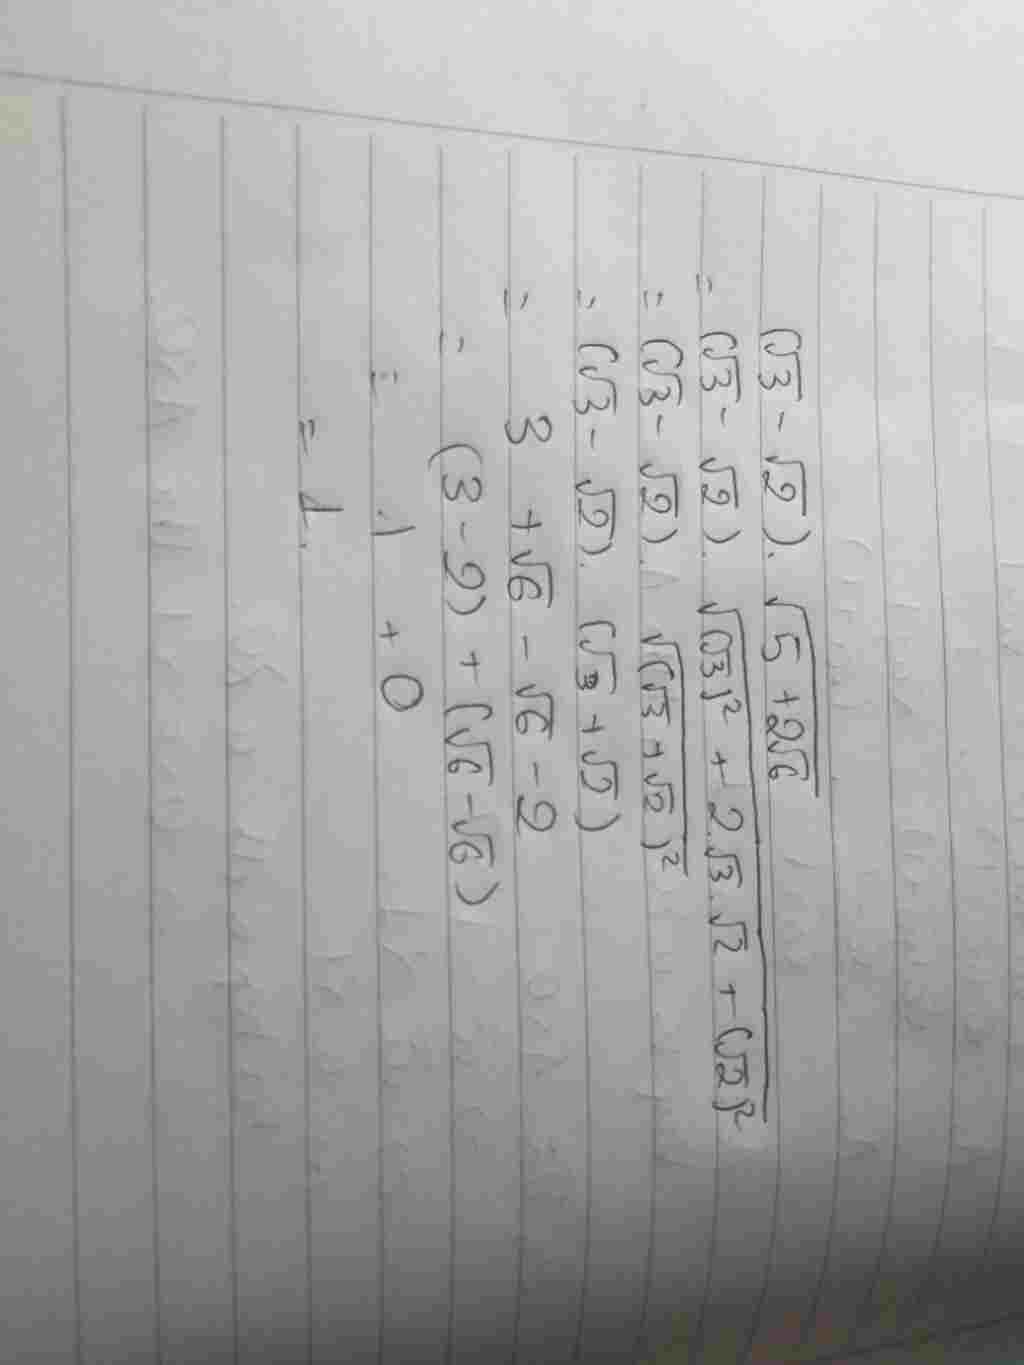 (√3 - √2). √(5 + 2√6)
= (√3 - √2). √((√3)² + 2.√3.√2 + (√2)²)
= (√3 - √2). √((√3 + √2)²)
= (√3 - √2). (√3 + √2)
= 3 + √6 - √6 - 2
= (3 - 2) + (√6 - √6)
= 1 + 0
= 1.